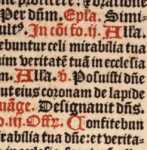 Per dn̄m. Epła. Simi-
In cōi fo.ij. Alła.
buntur celi mirabilia tua
im veritatē tuā in ecclesia
Alła. v. Posuisti dn̄e
ut eius coronam de lapide
Designauit dn̄s.
fo.iij. Offr. Confitebun
irabilia tua dn̄e: et verita-